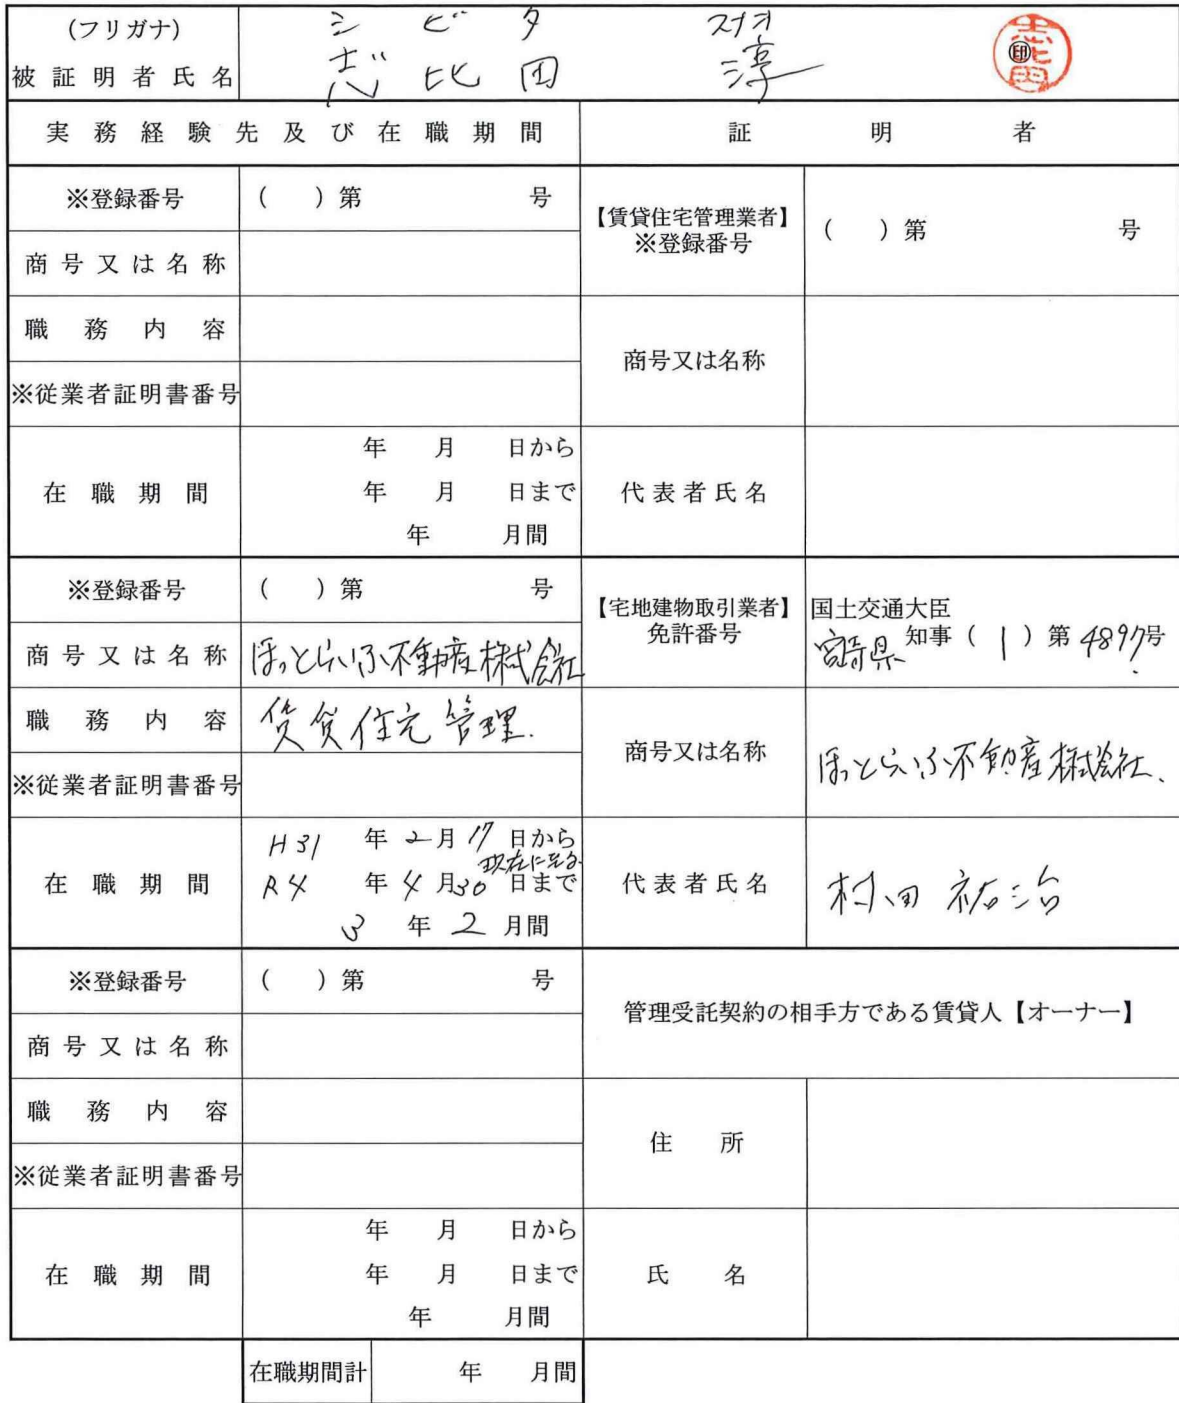 (フリガナ) シビタ スナオ
被証明者氏名 志比田 淳 ㊞ 志比田
実務経験先及び在職期間 証明者
※登録番号 ( )第 号
【賃貸住宅管理業者】
※登録番号
( )第 号
商号又は名称
職務内容
商号又は名称
※従業者証明書番号
在職期間
年 月 日から
年 月 日まで
年 月間
代表者氏名
※登録番号 ( )第 号
【宅地建物取引業者】
免許番号
国土交通大臣
宮崎県 知事 ( 1 ) 第 4897号
商号又は名称 ほっとらいふ不動産株式会社
職務内容 賃貸住宅管理.
商号又は名称 ほっとらいふ不動産株式会社.
※従業者証明書番号
在職期間
H31 年 2月 17 日から
現在に至る
R4 年 4月30 日まで
3 年 2 月間
代表者氏名 村田 祐治
※登録番号 ( )第 号
管理受託契約の相手方である賃貸人【オーナー】
商号又は名称
職務内容
住所
※従業者証明書番号
在職期間
年 月 日から
年 月 日まで
年 月間
氏名
在職期間計 年 月間